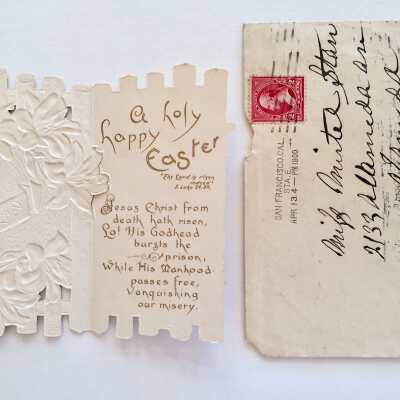 A holy
happy
Easter
"The Lord is risen
indeed"
S. Luke 24.34.
Jesus Christ from
death hath risen,
Lo! His Godhead
bursts the
prison,
While His Manhood
passes free,
Vanquishing
our misery.
SAN FRANCISCO, CAL.
STA. E
APR 13 4-PM 1900
Miss Minte Stan
2133 Alameda av
Alameda